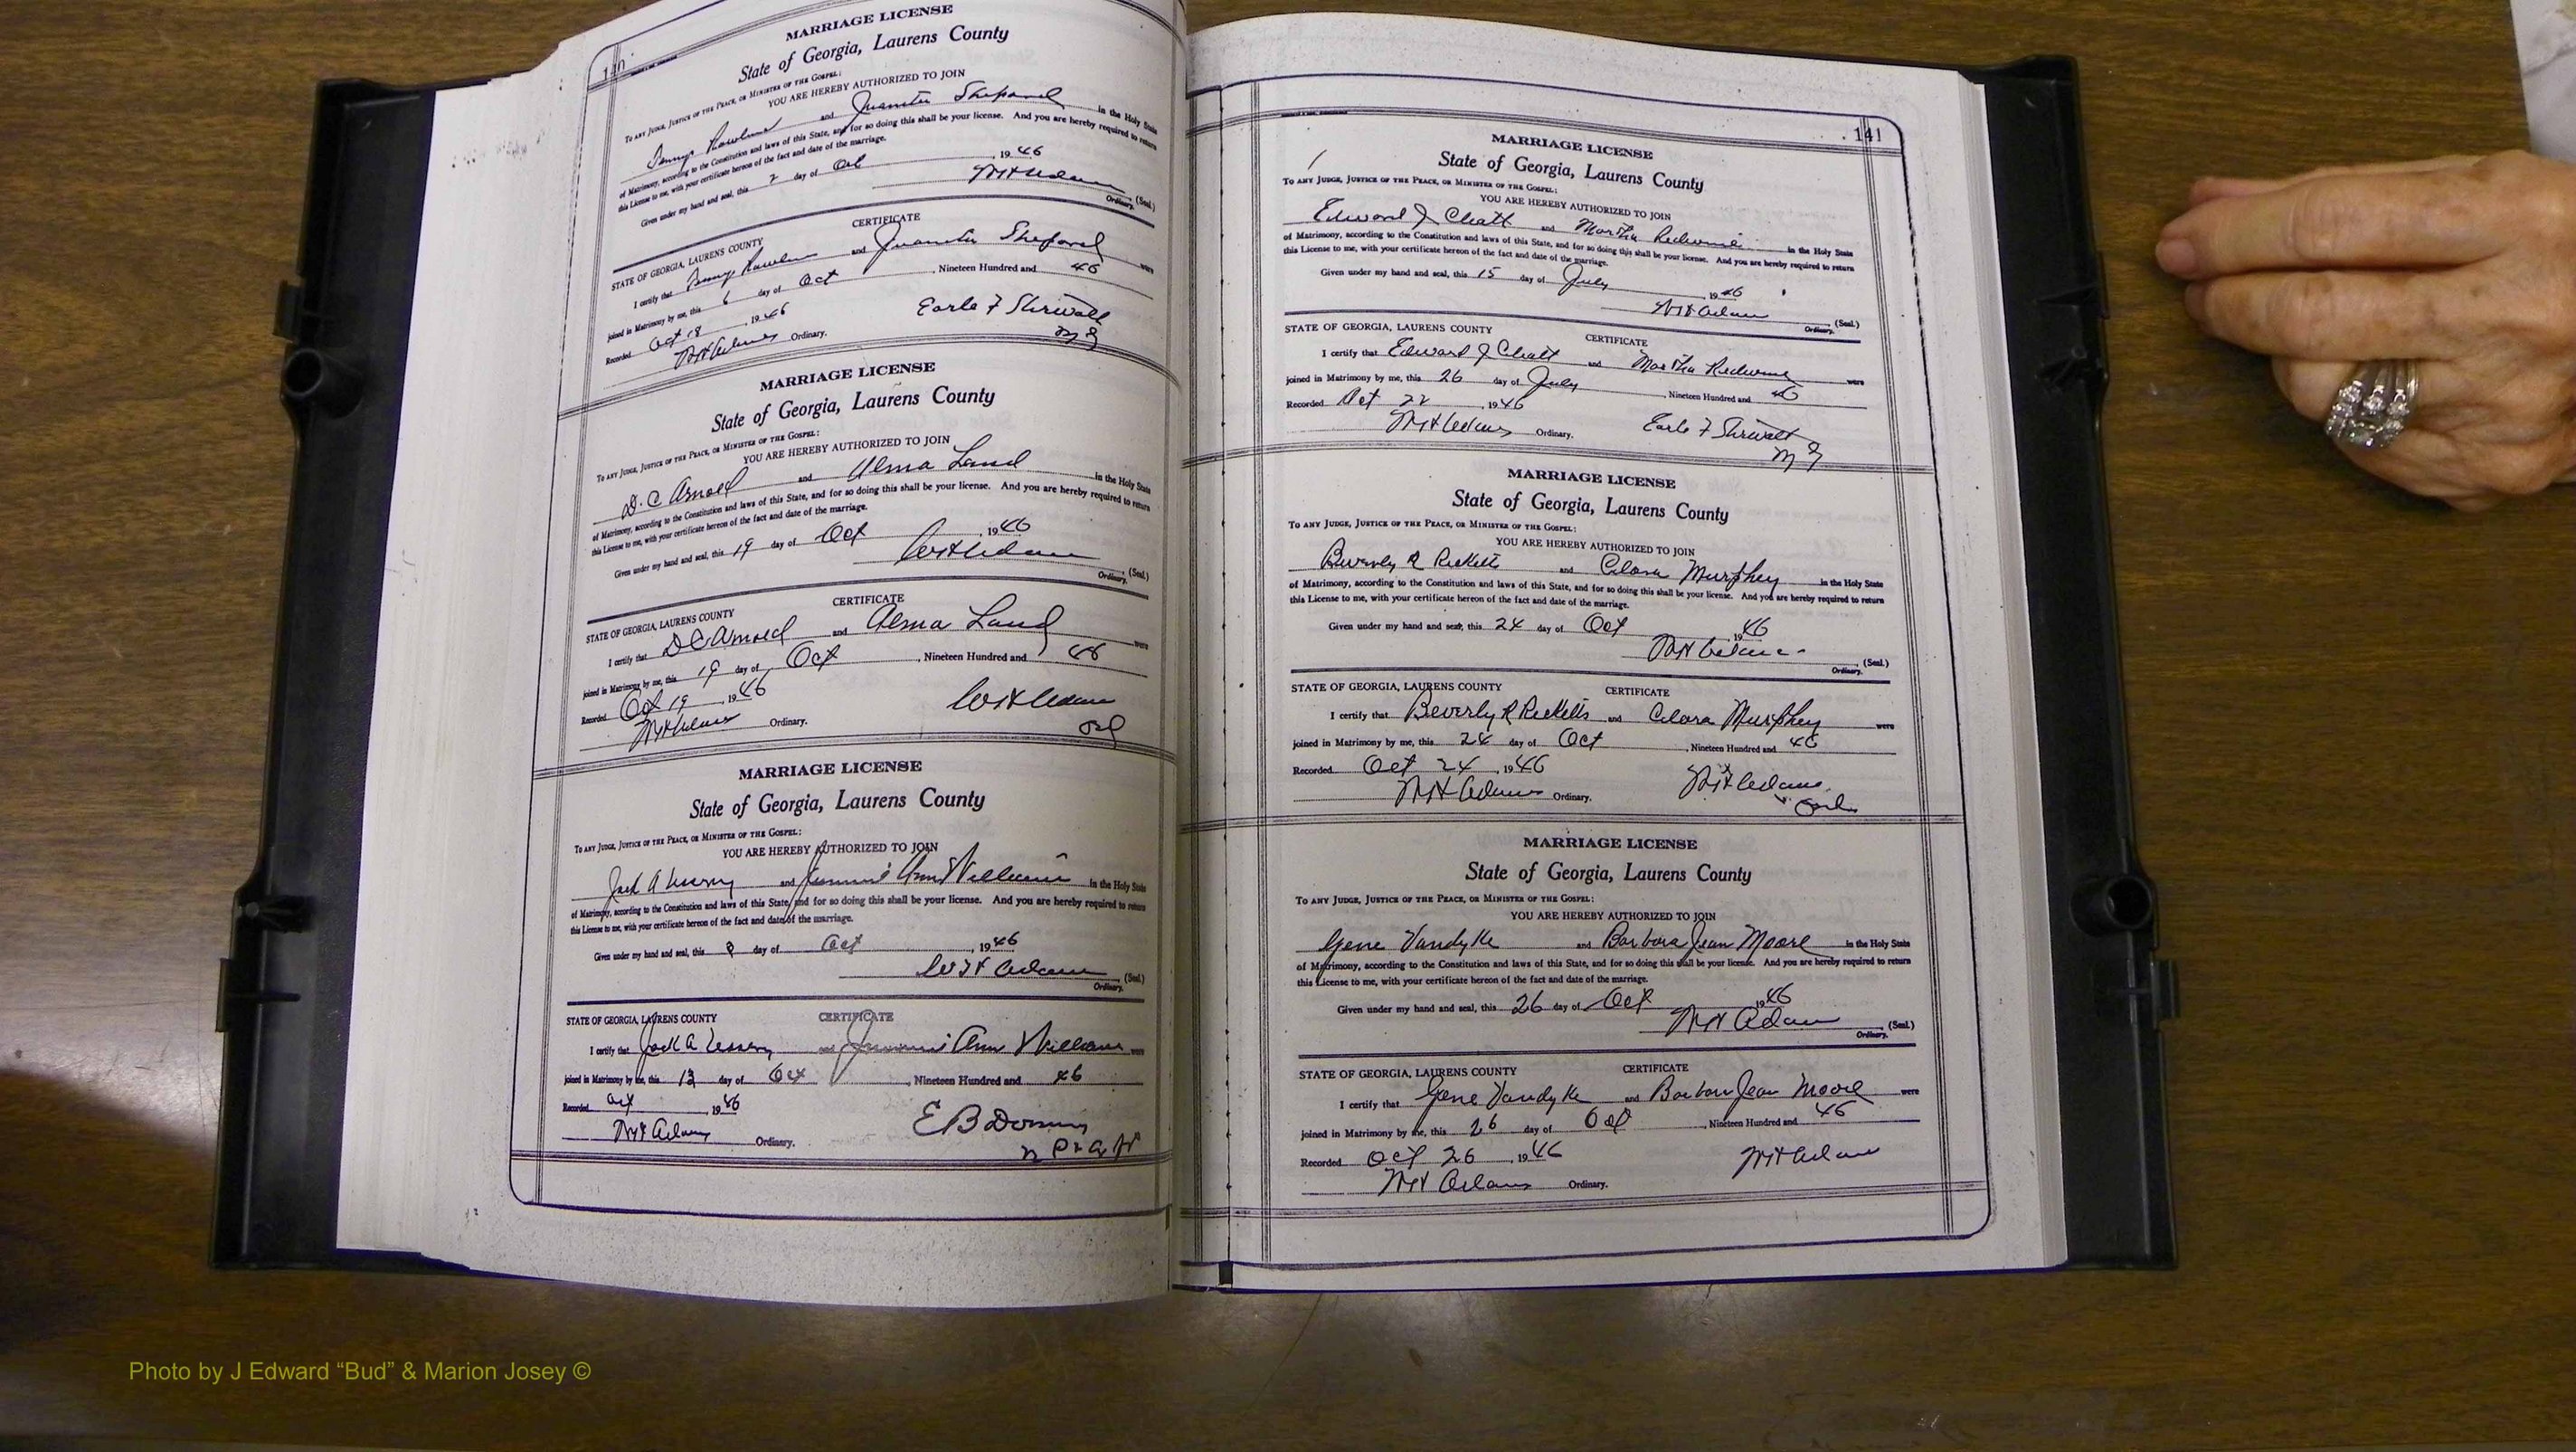 140
MARRIAGE LICENSE
State of Georgia, Laurens County
To any Judge, Justice of the Peace, or Minister of the Gospel:
YOU ARE HEREBY AUTHORIZED TO JOIN
and Juanita Sheppard in the Holy State
of Matrimony, according to the Constitution and laws of this State, and for so doing this shall be your license. And you are hereby required to return
this License to me, with your certificate hereon of the fact and date of the marriage.
Given under my hand and seal, this 2 day of Oct, 1946
WH Adams (Seal.)
Ordinary.
CERTIFICATE
STATE OF GEORGIA, LAURENS COUNTY
I certify that and Juanita Sheppard were
joined in Matrimony by me, this 6 day of Oct, Nineteen Hundred and 46
Recorded Oct 18, 1946 Earle F Stirwalt
WH Adams Ordinary. MG
MARRIAGE LICENSE
State of Georgia, Laurens County
To any Judge, Justice of the Peace, or Minister of the Gospel:
YOU ARE HEREBY AUTHORIZED TO JOIN
D. C Arnold and Alma Land in the Holy State
of Matrimony, according to the Constitution and laws of this State, and for so doing this shall be your license. And you are hereby required to return
this License to me, with your certificate hereon of the fact and date of the marriage.
Given under my hand and seal, this 19 day of Oct, 1946
WH Adams (Seal.)
Ordinary.
CERTIFICATE
STATE OF GEORGIA, LAURENS COUNTY
I certify that D C Arnold and Alma Land were
joined in Matrimony by me, this 19 day of Oct, Nineteen Hundred and 46
Recorded Oct 19, 1946 WH Adams
WH Adams Ordinary. Ord
MARRIAGE LICENSE
State of Georgia, Laurens County
To any Judge, Justice of the Peace, or Minister of the Gospel:
YOU ARE HEREBY AUTHORIZED TO JOIN
Jack A and Ann Williams in the Holy State
of Matrimony, according to the Constitution and laws of this State, and for so doing this shall be your license. And you are hereby required to return
this License to me, with your certificate hereon of the fact and date of the marriage.
Given under my hand and seal, this 8 day of Oct, 1946
WH Adams (Seal.)
Ordinary.
CERTIFICATE
STATE OF GEORGIA, LAURENS COUNTY
I certify that Jack A and Ann Williams were
joined in Matrimony by me, this 13 day of Oct, Nineteen Hundred and 46
Recorded Oct, 1946 E B
WH Adams Ordinary.
141
MARRIAGE LICENSE
State of Georgia, Laurens County
To any Judge, Justice of the Peace, or Minister of the Gospel:
YOU ARE HEREBY AUTHORIZED TO JOIN
Edward J Chatt and Martha Redwine in the Holy State
of Matrimony, according to the Constitution and laws of this State, and for so doing this shall be your license. And you are hereby required to return
this License to me, with your certificate hereon of the fact and date of the marriage.
Given under my hand and seal, this 15 day of July, 1946
WH Adams (Seal.)
Ordinary.
CERTIFICATE
STATE OF GEORGIA, LAURENS COUNTY
I certify that Edward J Chatt and Martha Redwine were
joined in Matrimony by me, this 26 day of July, Nineteen Hundred and 46
Recorded Oct 22, 1946
WH Adams Ordinary. Earle F Stirwalt
MG
MARRIAGE LICENSE
State of Georgia, Laurens County
To any Judge, Justice of the Peace, or Minister of the Gospel:
YOU ARE HEREBY AUTHORIZED TO JOIN
Beverly R Ricketts and Clara Murphey in the Holy State
of Matrimony, according to the Constitution and laws of this State, and for so doing this shall be your license. And you are hereby required to return
this License to me, with your certificate hereon of the fact and date of the marriage.
Given under my hand and seal, this 24 day of Oct 1946
WH Adams (Seal.)
Ordinary.
CERTIFICATE
STATE OF GEORGIA, LAURENS COUNTY
I certify that Beverly R Ricketts and Clara Murphey were
joined in Matrimony by me, this 24 day of Oct, Nineteen Hundred and 46
Recorded Oct 24, 1946 WH Adams
WH Adams Ordinary. Ord
MARRIAGE LICENSE
State of Georgia, Laurens County
To any Judge, Justice of the Peace, or Minister of the Gospel:
YOU ARE HEREBY AUTHORIZED TO JOIN
Gene Vandyke and Barbara Jean Moore in the Holy State
of Matrimony, according to the Constitution and laws of this State, and for so doing this shall be your license. And you are hereby required to return
this License to me, with your certificate hereon of the fact and date of the marriage.
Given under my hand and seal, this 26 day of Oct 1946
WH Adams (Seal.)
Ordinary.
CERTIFICATE
STATE OF GEORGIA, LAURENS COUNTY
I certify that Gene Vandyke and Barbara Jean Moore were
joined in Matrimony by me, this 26 day of Oct, Nineteen Hundred and 46
Recorded Oct 26, 1946 WH Adams
WH Adams Ordinary.
Photo by J Edward “Bud” & Marion Josey ©